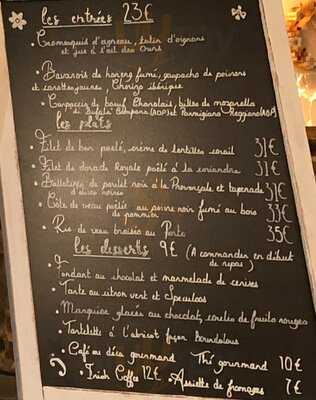 les entrées 23€
• Cromesquis d'agneau, tatin d'oignons
et jus à l'ail des Ours
• Bavarois de hareng fumé, gaspacho de poivrons
et carottes jaunes, Chorizo ibérique
• Carpaccio de bœuf Charolais, billes de mozzarella
di Bufala Campana (AOP) et Parmigiano Reggiano (AOP)
les plats
• Filet de bar poêlé, crème de lentilles corail 31€
• Filet de dorade Royale poêlé à la coriandre 31€
• Ballottines de poulet noir à la Provençale et tapenade
d'olives noires 31€
• Côte de veau poêlée au poivre noir fumé au bois
de pommier 33€
• Ris de veau braisés au Porto 35€
les desserts 9€ (A commander en début
de repas)
• Fondant au chocolat et marmelade de cerises
• Tarte au citron vert et Speculoos
• Meringue glacée au chocolat, coulis de fruits rouges
• Tartelette à l'abricot façon Bourdaloue
• Café ou déca gourmand Thé gourmand 10€
• Irish Coffee 12€ Assiette de fromages 7€